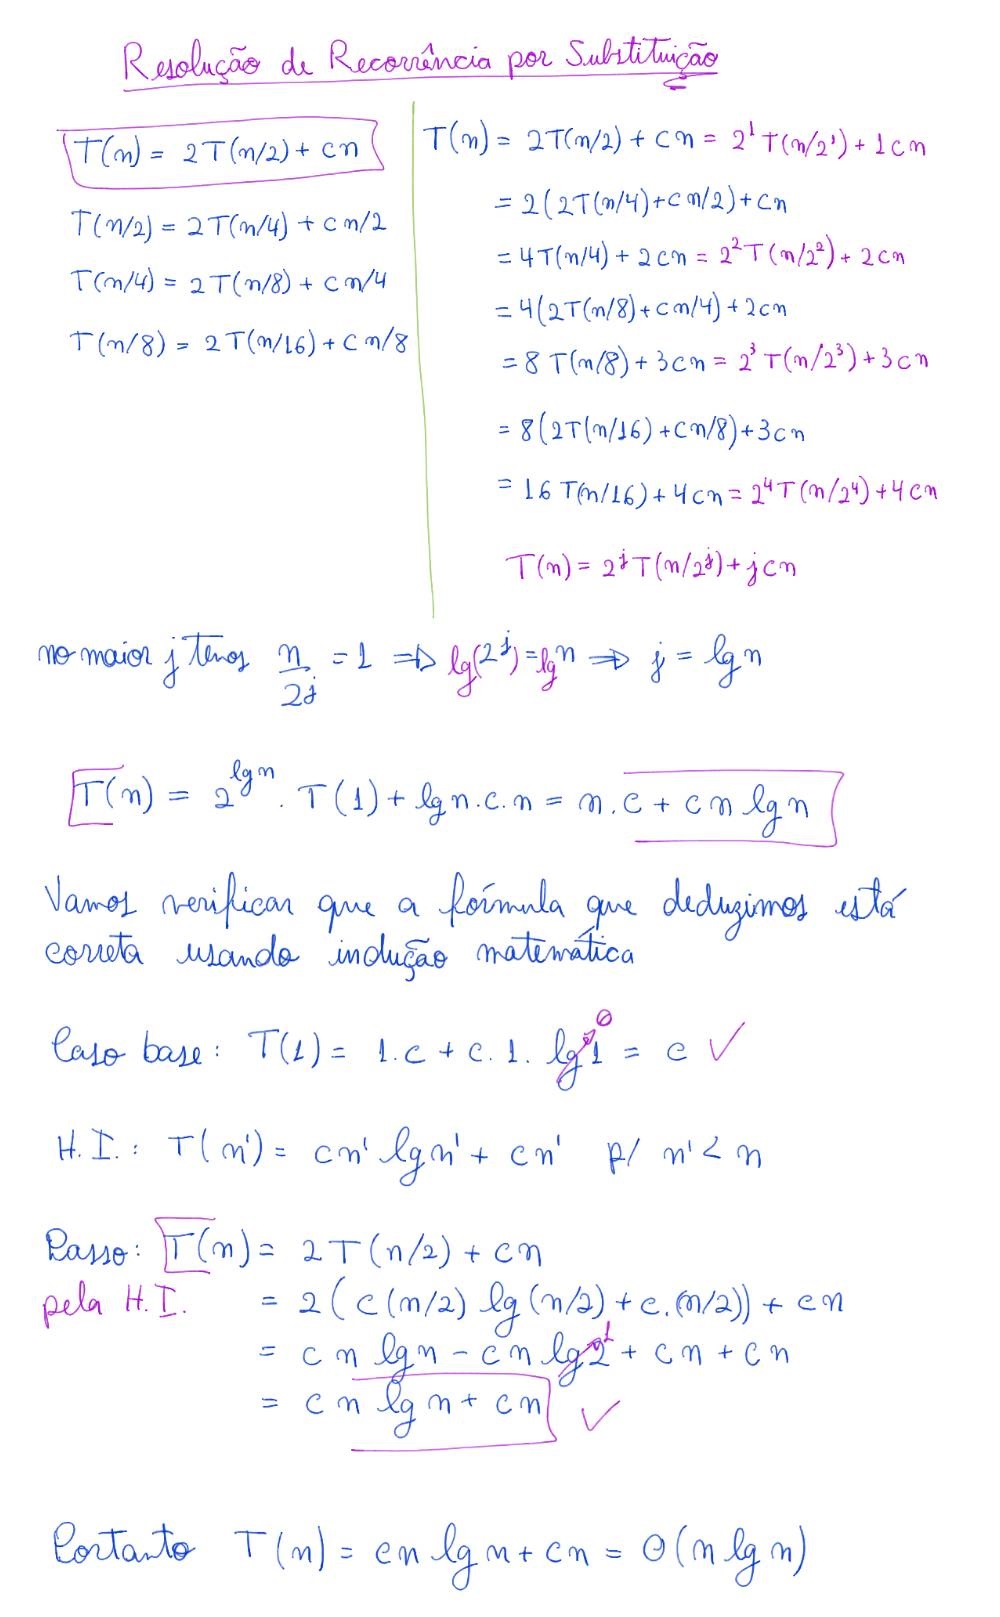 Resolução de Recorrência por Substituição
T(n) = 2T(n/2) + cn
T(n/2) = 2T(n/4) + cn/2
T(n/4) = 2T(n/8) + cn/4
T(n/8) = 2T(n/16) + cn/8
T(n) = 2T(n/2) + cn = 2¹T(n/2¹) + 1cn
= 2(2T(n/4) + cn/2) + cn
= 4T(n/4) + 2cn = 2²T(n/2²) + 2cn
= 4(2T(n/8) + cn/4) + 2cn
= 8T(n/8) + 3cn = 2³T(n/2³) + 3cn
= 8(2T(n/16) + cn/8) + 3cn
= 16T(n/16) + 4cn = 2⁴T(n/2⁴) + 4cn
T(n) = 2ʲT(n/2ʲ) + jcn
no maior j temos n/2ʲ = 1 ⇒ lg(2ʲ) = lg n ⇒ j = lg n
T(n) = 2^(lg n) . T(1) + lg n . c . n = n . c + cn lg n
Vamos verificar que a fórmula que deduzimos está
correta usando indução matemática
Caso base: T(1) = 1.c + c.1. lg 1 0 = c ✓
H.I.: T(n') = cn' lg n' + cn' p/ n' < n
Passo: T(n) = 2T(n/2) + cn
pela H.I. = 2(c(n/2) lg(n/2) + c.(n/2)) + cn
= cn lg n - cn lg 2 1 + cn + cn
= cn lg n + cn ✓
Portanto T(n) = cn lg n + cn = Θ(n lg n)